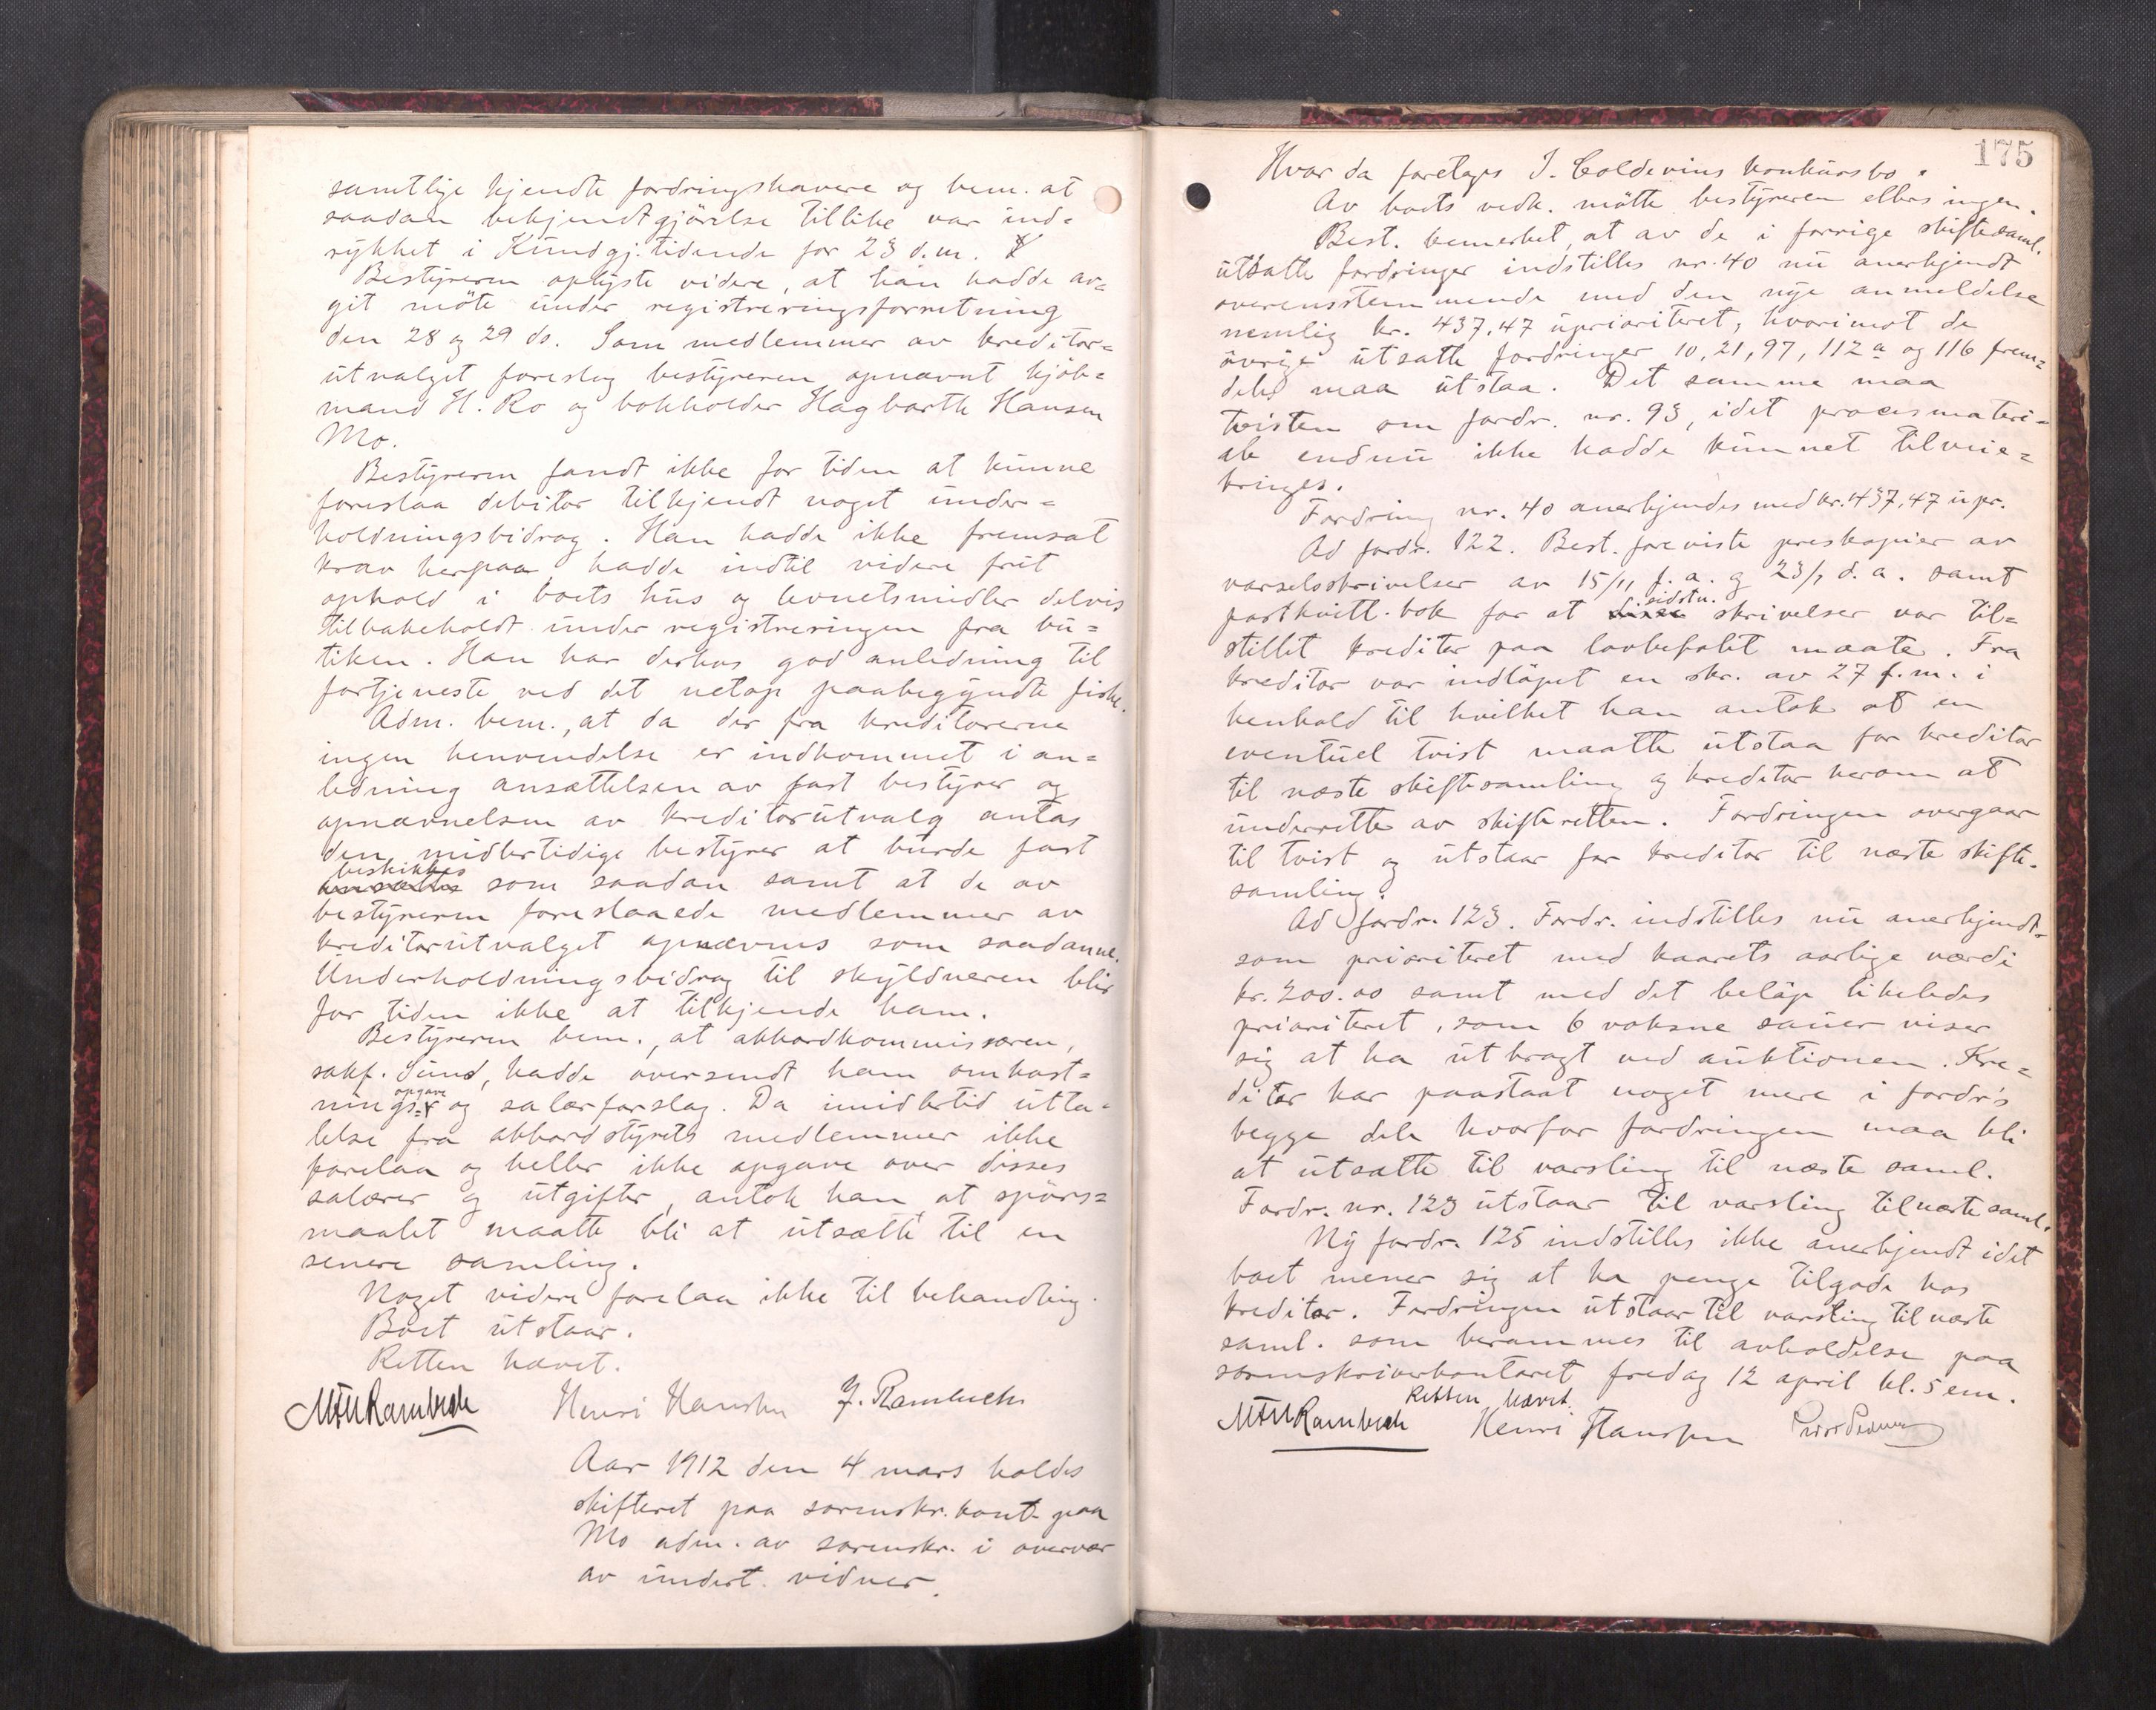 samtlige kjendte fordringshavere og bem. at
saadan bekjendtgjörelse tillike var ind-
rykket i Kundgj.tidende for 23 d.m.
Bestyreren oplyste videre, at han hadde av-
git möte under registreringsforretning
den 28 og 29 ds. Som medlemmer av kreditor-
utvalget foreslog bestyreren opnævnt kjöb-
mand H. Ro og bokholder Hagbarth Hansen
Mo.
Bestyreren fandt ikke for tiden at kunne
foreslaa debitor tilkjendt noget under-
holdningsbidrag. Han hadde ikke fremsat
krav herpaa, hadde indtil videre frit
ophold i boets hus og levnetsmidler delvis
tilbakeholdt under registreringen fra bu-
tiken. Han har derhos god anledning til
fortjeneste ved det netop paabegyndte fiske.
Adm. bem., at da der fra kreditorerne
ingen henvendelse er indkommet i an-
ledning ansættelsen av fast bestyrer og
opnævnelsen av kreditorutvalg antas
den midlertidige bestyrer at burde fast
beskikkes
ansættes som saadan samt at de av
bestyreren foreslaaede medlemmer av
kreditorutvalget opnævnes som saadanne.
Underholdningsbidrag til skyldneren blir
for tiden ikke at tilkjende ham.
Bestyreren bem., at akkordkommissæren,
sakf. Sund, hadde oversendt ham omkost-
opgave
nings- og salærforslag. Da imidlertid utta-
lelse fra akkordstyrets medlemmer ikke
forelaa og heller ikke opgave over disses
salærer og utgifter, antok han at spörs-
maalet maatte bli at utsætte til en
senere samling.
Noget videre forelaa ikke til behandling.
Boet utstaar.
Retten hævet.
MFMRambech Henri Hansen J. Rambech
Aar 1912 den 4 mars holdes
skifteret paa sorenskr.kont. paa
Mo adm. av sorenskr. i overvær
av undert. vidner.
175
Hvor da foretages J. Coldevins konkursbo.
Av boets vedk. mötte bestyreren ellers ingen.
Best. bemerket, at av de i forrige skiftesaml.
utsatte fordringer indstilles nr. 40 nu anerkjendt
overensstemmende med den nye anmeldelse
nemlig kr. 437,47 uprioriteret, hvorimot de
övrige utsatte fordringer 10, 21, 97, 112a og 116 frem-
deles maa utstaa. Det samme maa
tvisten om fordr. nr. 93, idet procesmateri-
ale endnu ikke hadde kunnet tilveie-
bringes.
Fordring nr. 40 anerkjendes med kr. 437,47 upr.
Ad fordr. 122. Best. foreviste preskopier av
varselsskrivelser av 15/11 f.a. og 23/1 d.a. samt
sidstn.
postkvitt.bok for at disse skrivelser var til-
stillet kreditor paa lovbefalet maate. Fra
kreditor var indlöpet en skr. av 27 f.m. i
henhold til hvilket han antok at en
eventuel tvist maatte utstaa for kreditor
til næste skiftesamling og kreditor herom at
underrette av skifteretten. Fordringen overgaar
til tvist og utstaar for kreditor til næste skifte-
samling.
Ad fordr. 123. Fordr. indstilles nu anerkjendt
som prioriteret med kaarets aarlige værdi
kr. 200.00 samt med det belöp likeledes
prioriteret, som 6 voksne sauer viser
sig at ha utbragt ved auktionen. Kre-
ditor har paastaat noget mere i fordr's
begge dele hvorfor fordringen maa bli
at utsætte til varsling til næste saml.
Fordr. nr. 123 utstaar til varsling til næste saml.
Ny fordr. 125 indstilles ikke anerkjendt idet
boet mener sig at ha penge tilgode hos
kreditor. Fordringen utstaar til varsling til næste
saml. som berammes til avholdelse paa
sorenskriverkontoret fredag 12 april kl. 5 em.
Retten hævet.
MFMRambech Henri Hansen